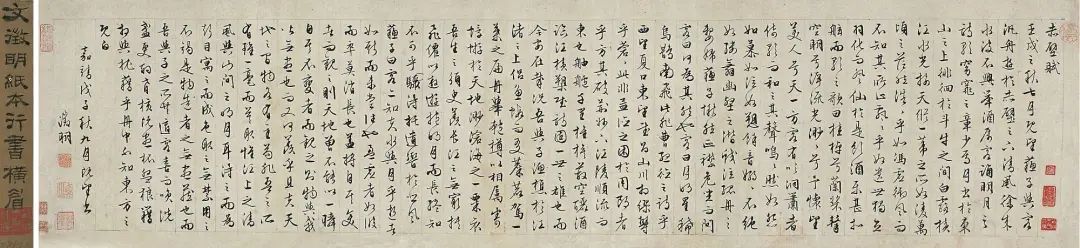 赤壁賦
壬戌之秋七月既望蘇子與客
汎舟遊於赤壁之下清風徐來
水波不興舉酒屬客誦明月之
詩歌窈窕之章少焉月出於東
山之上徘徊於斗牛之間白露橫
江水光接天縱一葦之所如凌萬
頃之茫然浩浩乎如馮虛御風而
不知其所止飄飄乎如遺世獨立
羽化而登仙於是飲酒樂甚扣
舷而歌之歌曰桂棹兮蘭槳擊
空明兮泝流光渺渺兮予懷望
美人兮天一方客有吹洞簫者
倚歌而和之其聲嗚嗚然如怨
如慕如泣如訴餘音嫋嫋不絕
如縷舞幽壑之潛蛟泣孤舟之
嫠婦蘇子愀然正襟危坐而問
客曰何為其然也客曰月明星稀
烏鵲南飛此非曹孟德之詩乎
西望夏口東望武昌山川相繆鬱
乎蒼蒼此非孟德之困於周郎者
乎方其破荊州下江陵順流而
東也舳艫千里旌旗蔽空釃酒
臨江橫槊賦詩固一世之雄也而
今安在哉況吾與子漁樵於江
渚之上侶魚蝦而友麋鹿駕一
葉之扁舟舉匏樽以相屬寄
蜉蝣於天地渺滄海之一粟哀
吾生之須臾羨長江之無窮挾
飛仙以遨遊抱明月而長終知
不可乎驟得託遺響於悲風
蘇子曰客亦知夫水與月乎逝者
如斯而未嘗往也盈虛者如彼
而卒莫消長也蓋將自其變
者而觀之則天地曾不能以一瞬
自其不變者而觀之則物與我
皆無盡也而又何羨乎且夫天
地之間物各有主苟非吾之所
有雖一毫而莫取惟江上之清
風與山間之明月耳得之而為
聲目寓之而成色取之無禁用之
不竭是造物者之無盡藏也而
吾與子之所共適客喜而笑洗
盞更酌肴核既盡杯盤狼藉
相與枕藉乎舟中不知東方之
既白
嘉靖戊子秋九月既望書
徵明
文徵明紙本行書橫眉